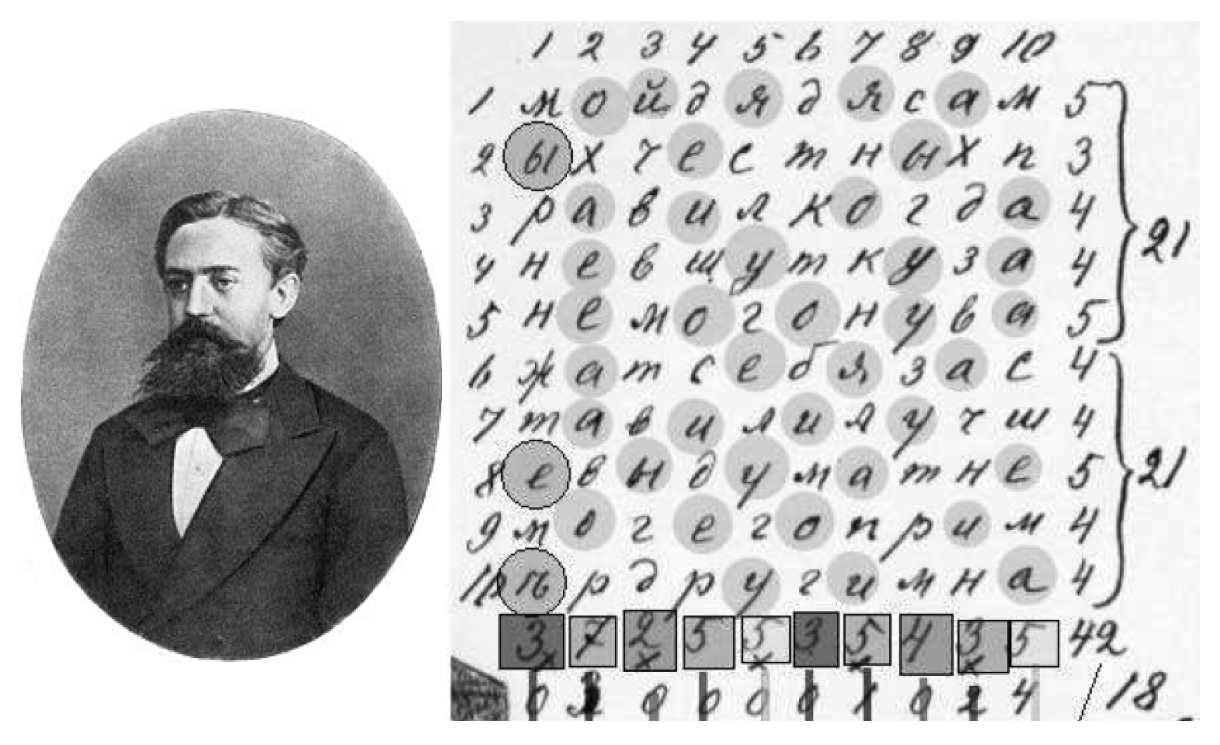 1 2 3 4 5 6 7 8 9 10
1 м о й д я д я с а м 5
2 ы х ч е с т н ы х п 3
3 р а в и л к о г д а 4
21
4 н е в ш у т к у з а 4
5 н е м о г о н у в а 5
6 ж а т с е б я з а с 4
7 т а в и л и л у ч ш 4
8 е в ы д у м а т н е 5
21
9 м о г е г о п р и м 4
10 ѣ р д р у г и м н а 4
3 7 2 5 5 3 5 4 3 5 42
х х х х х
0 0 0 0 0 1 0 2 4 / 18